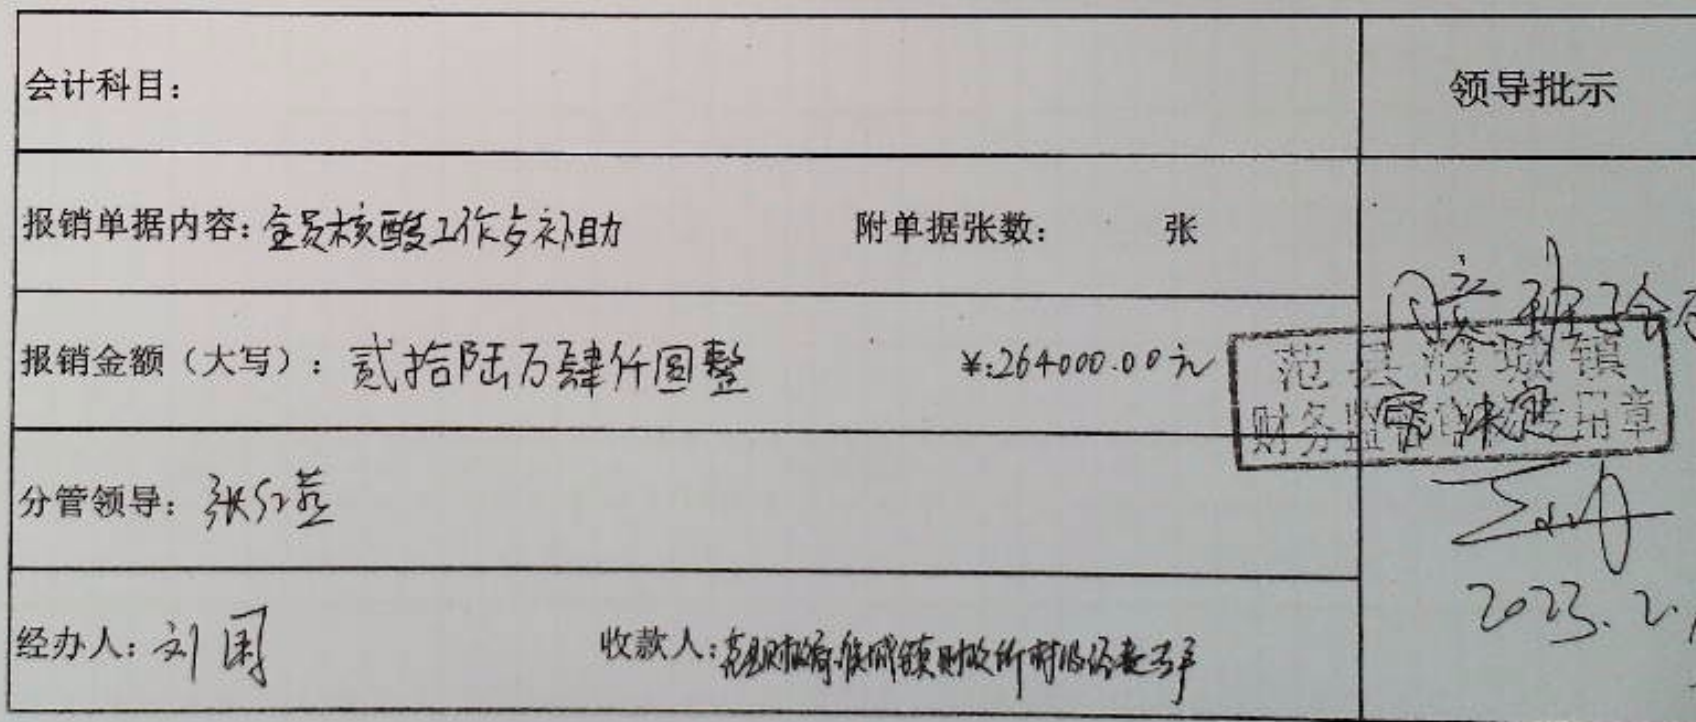 会计科目：
领导批示
报销单据内容：全员核酸工作点补助 附单据张数： 张
同意 班子会
报销金额（大写）：贰拾陆万肆仟圆整 ¥:264000.00元
范县濮城镇
财务监督 专用章
分管领导：张红燕
经办人：刘国 收款人：范县财政局濮城镇财政所村级经费专户
2023.2.